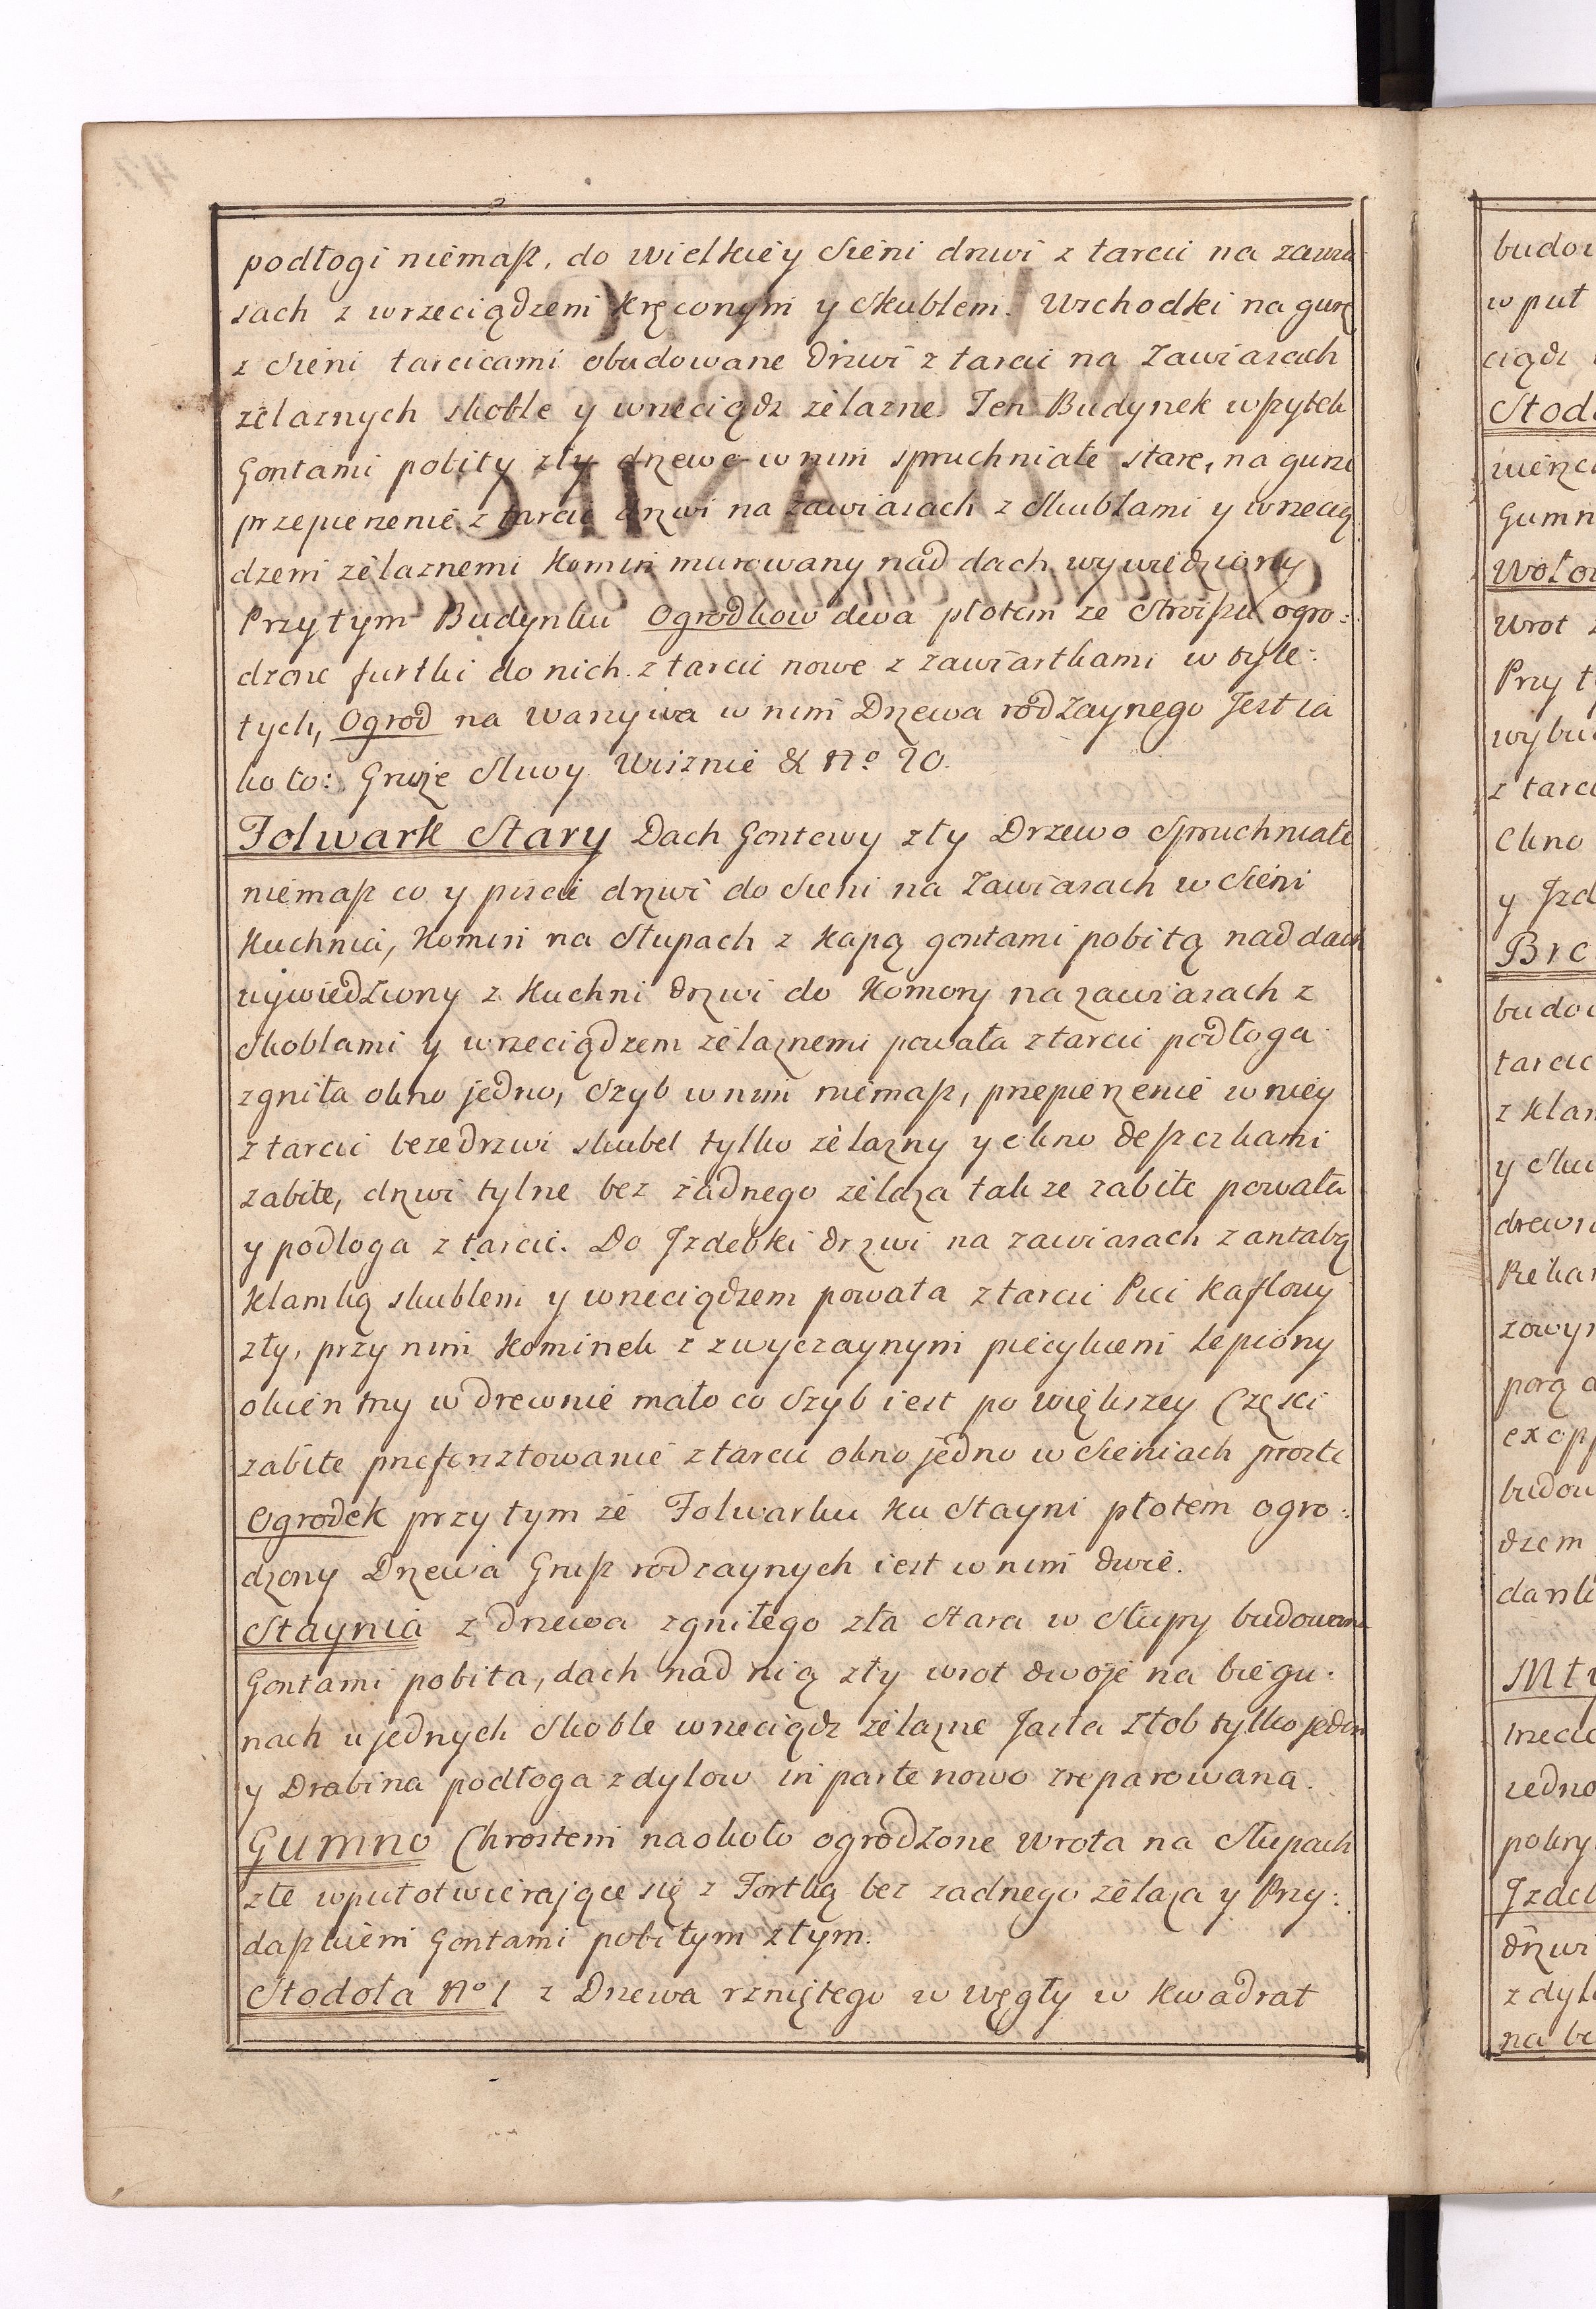 podłogi niemasz, do wielkiey Sieni drzwi z tarcic na zawia
sach z wrzeciądzem kręconym y Skublem. Wschodki na gurę
z Sieni tarcicami obudowane drzwi z tarcic na Zawiasach
żelaznych skoble y wrzeciądz żelazne. Ten Budynek wszytek
Gontami pobity zły drzewo w nim spruchniałe stare, na gurze
przepierzenie z tarcic drzwi na zawiasach z Skublami y wrzecią
dzem żelaznemi Komin murowany nad dach wywiedziony
Przytym Budynku Ogrodkow dwa płotem ze Stroiszu ogro:
dzone furtki do nich z tarcic nowe z zawiastkami w tyle
tych, Ogrod na warzywa w nim Drzewa rodzaynego Jest ia
ko to: Grusze Sliwy Wisznie & No 20.
Folwark Stary Dach Gontowy zły Drzewo Spruchniałe
niemasz co y pisać drzwi do Sieni na Zawiasach w Sieni
Kuchnia, Komin na Słupach z Kapą gontami pobitą nad dach
wywiedziony z Kuchni drzwi do Komory na zawiasach z
Skoblami y wrzeciądzem żelaznemi powała z tarcic podłoga
zgniła okno jedno, Szyb w nim niemasz, przepierzenie w niey
z tarcic beze drzwi skubel tylko żelazny y okno deszczkami
zabite, drzwi tylne bez żadnego żelaza także zabite powała
y podłoga z tarcic. Do Jzdebki drzwi na zawiasach z antabą
Klamką skublem y wrzeciądzem powała z tarcic Piec kaflowy
zły, przy nim Kominek z zwyczaynym piecykiem Lepiony
okien trzy w drewnie mało co Szyb iest po większey Części
zabite przeforsztowanie z tarcic okno jedno w Sieniach proste
Ogrodek przy tym że Folwarku ku Stayni płotem ogro:
dzony Drzewa Grusz rodzaynych iest w nim dwie.
Staynia z drzewa zgniłego zła Stara w Słupy budowana
Gontami pobita, dach nad nią zły wrot dwoje na biegu:
nach u jednych Skoble wrzeciądz żelazne Jasła Złob tylko jeden
y Drabina podłoga z dylow in parte nowo zreparowana.
Gumno Chrostem naokoło ogrodzone wrota na Słupach
złe wpuł otwierające się z Fortką bez zadnego żelaza y Przy:
daszkiem Gontami pobitym złym.
Stodoła No 1 z Drzewa rzniętego w węgły w kwadrat